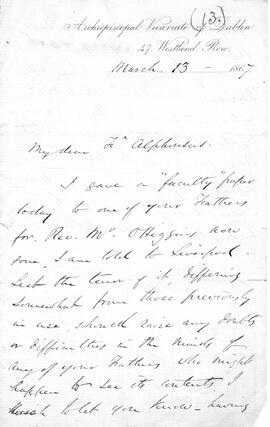 (13.)
Archiepiscopal Vicariate of Dublin
47. Westland Row,
March. 13 - 1867
My dear Fr Alphonsus.
I gave a "faculty" paper
today to one of your Fathers
for Rev. Mr. O'Higgins now
gone, I am told to Liverpool.
Lest the tenor of it, differing
somewhat from those previously
in use, should raise any doubts
or difficulties in the minds of
any of your Fathers who might
happen to see its contents I
wish to let you know - having